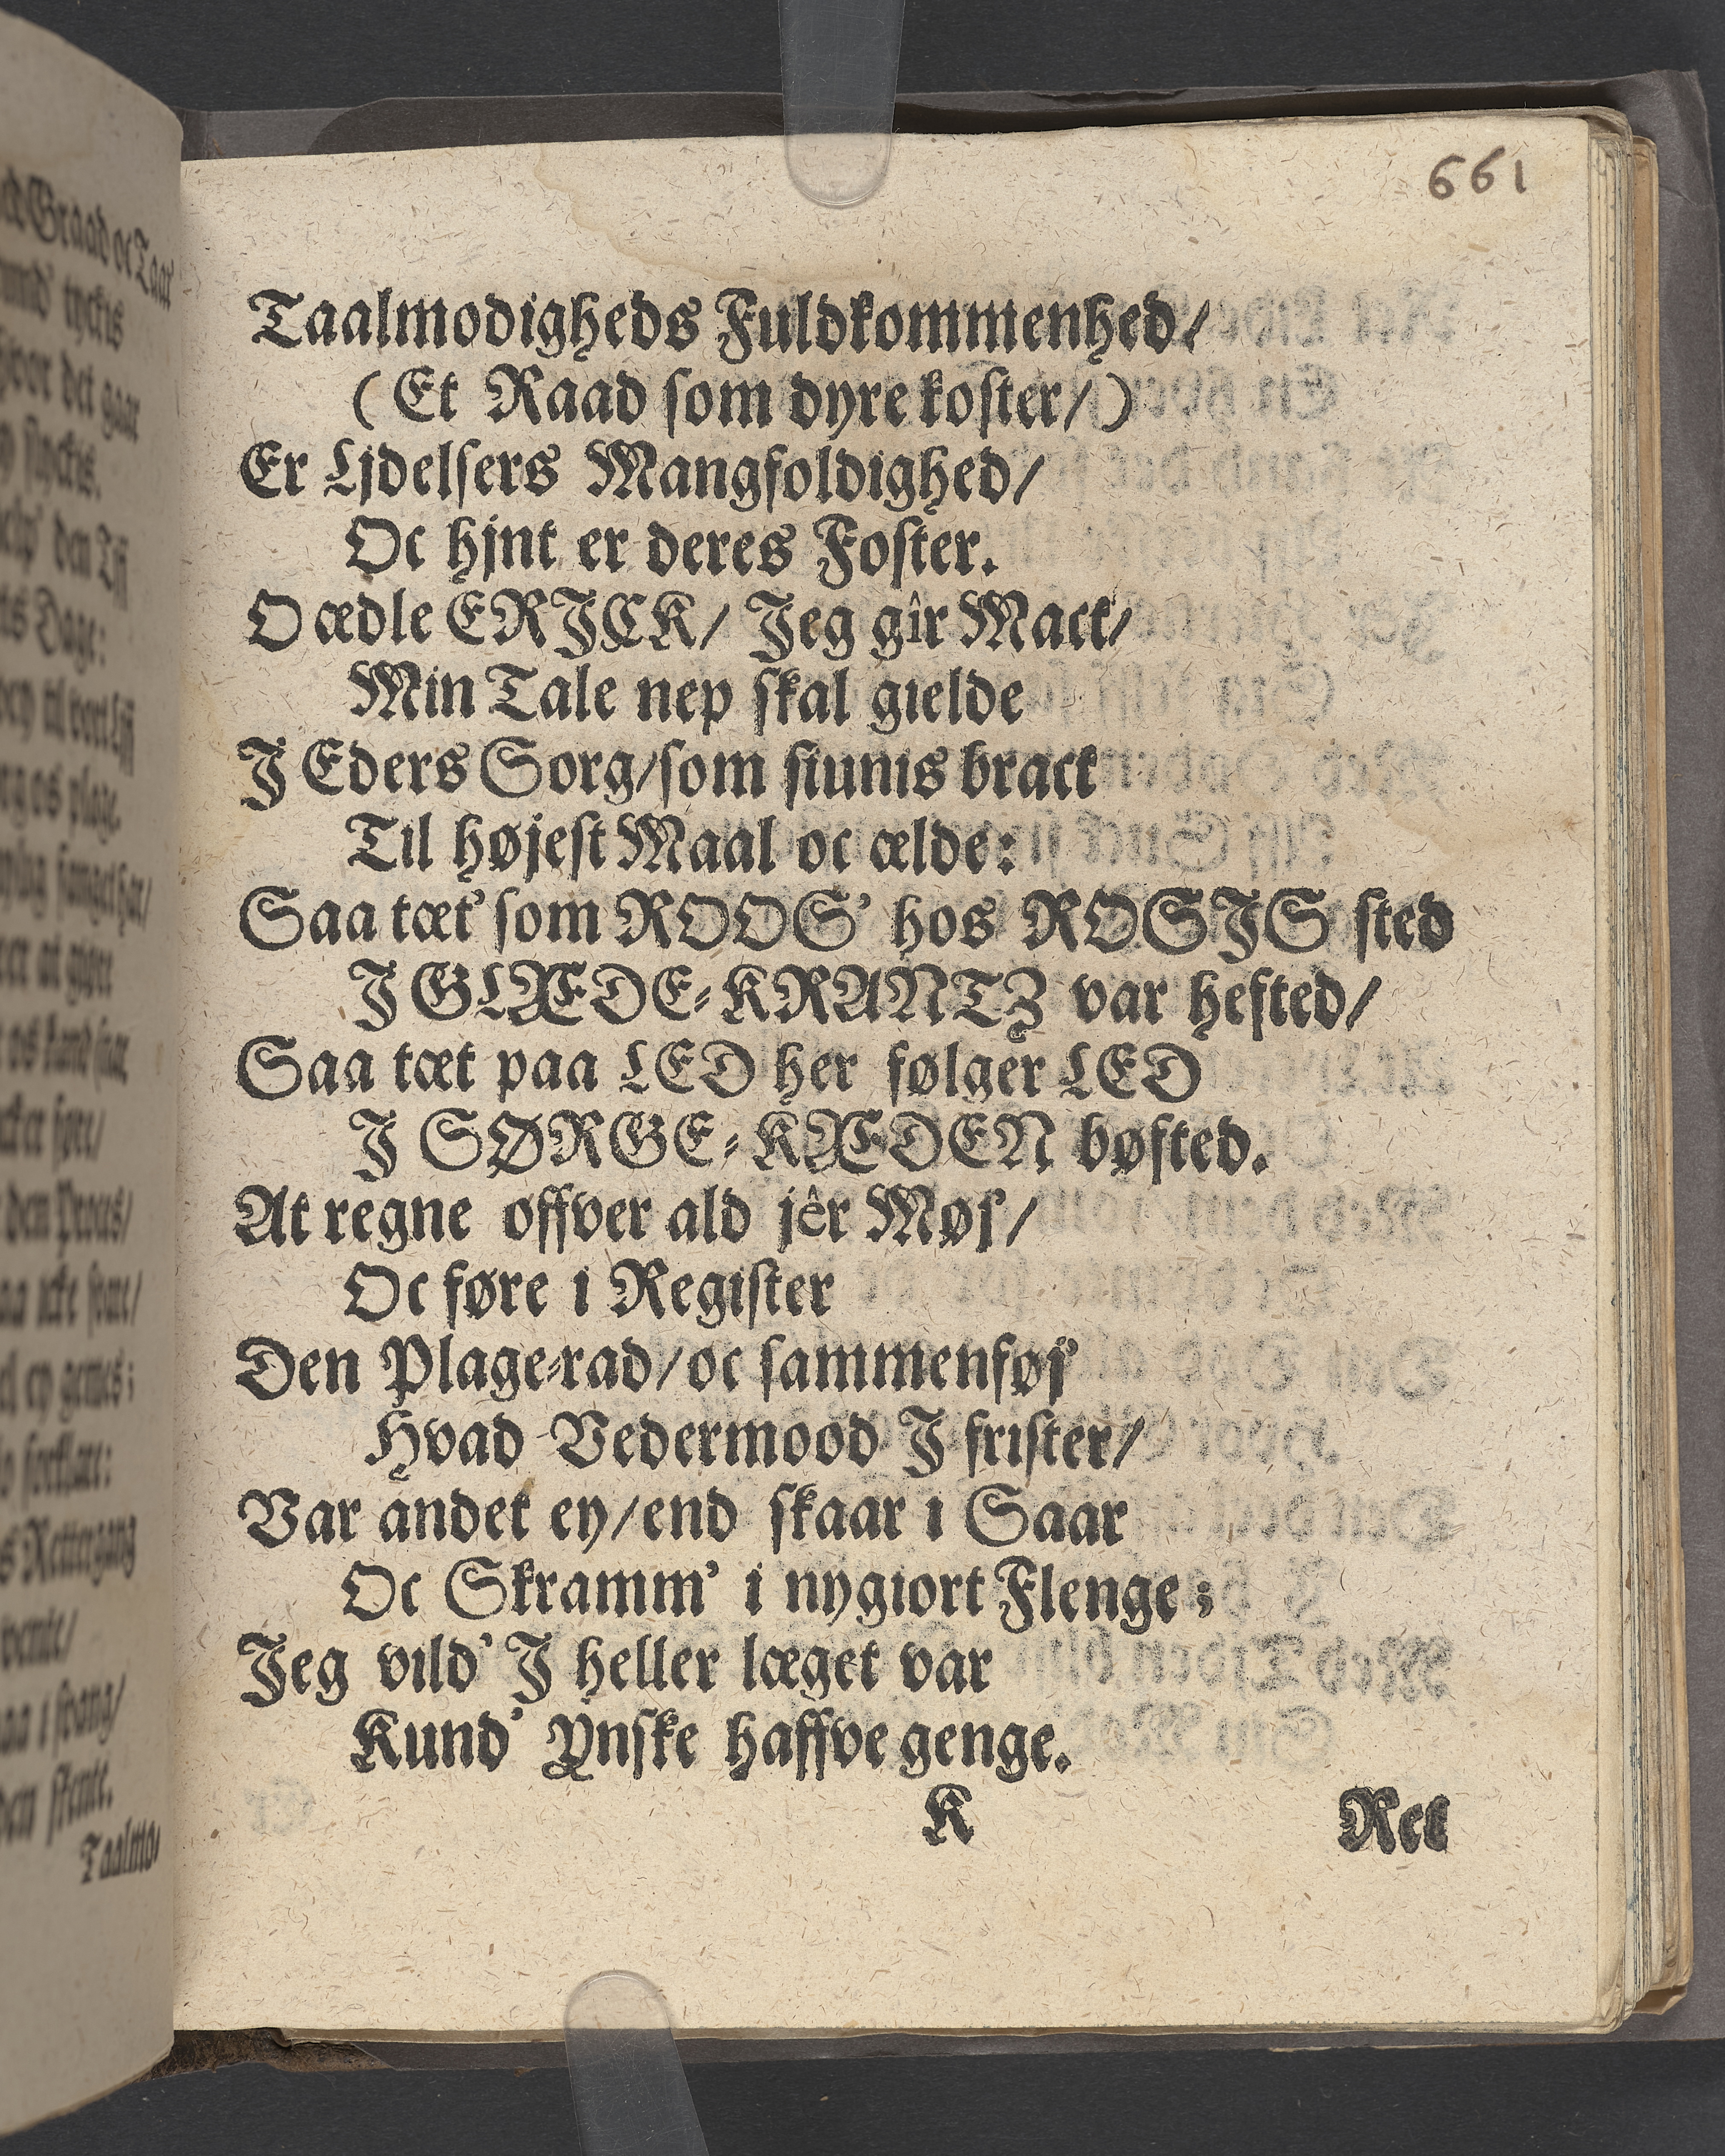 661
Taalmodigheds Fuldkommenhed/
(Et Raad som dyre koster/)
Er Ljdelsers Mangfoldighed/
Oc hjnt er deres Foster.
O ædle ERJCK/ Jeg gîr Mact/
Min Tale nep skal gielde
J Eders Sorg/som siunis bract
Til højest Maal oc ælde:
Saa tæt' som ROOS' hos ROSJS sted
J GLÆDE-KRANTZ var hefted/
Saa tæt paa LED her følger LED
J SØRGE-KÆDEN bøfted.
At regne offver ald jêr Møj/
Oc føre i Register
Den Plage-rad/oc sammenføj'
Hvad Vedermood J frister/
Var andet ey/end skaar i Saar
Oc Skramm' i nygiort Flenge;
Jeg vild' J heller læget var
Kund' Ynske haffve genge.
K
Ret
Graad oc Taar'
tyckis
det gaar
styckis.
den Tjj
Dage:
til
plage.
at giøre
den
icke
ey
Rettergang
stente.
Taalmo-